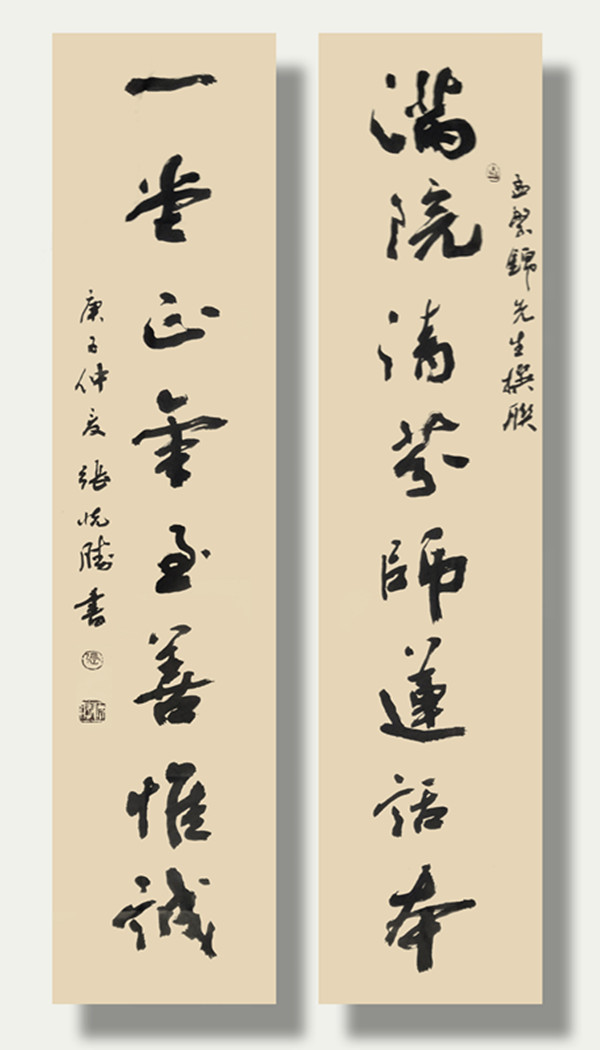 滿院清芬師蓮話本
孟繁錦先生撰聯
一堂正氣至善惟誠
庚子仲夏張悦勝書